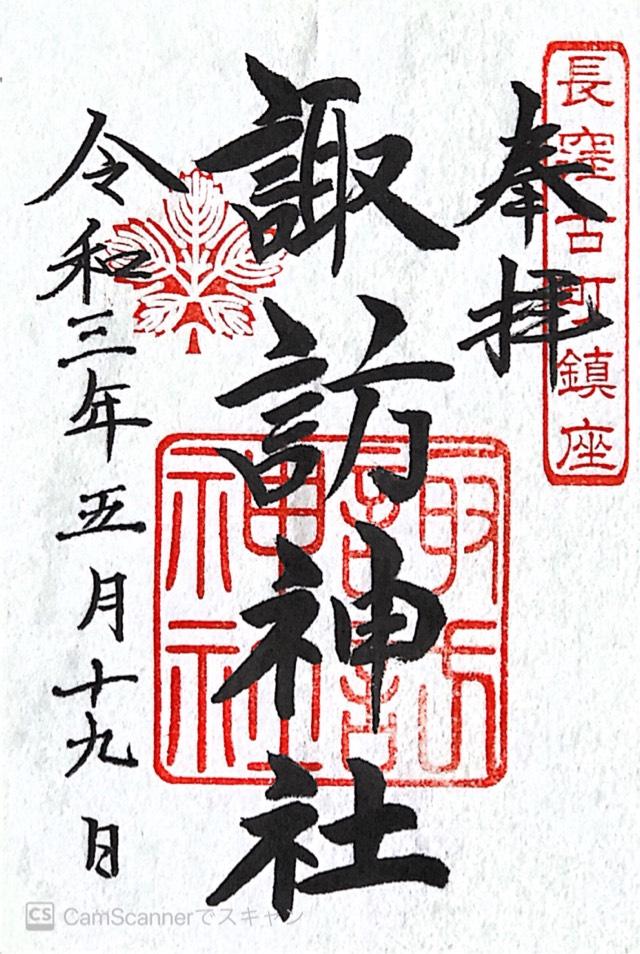 長窪古町鎮座
奉拝
諏訪神社
諏訪神社
令和三年五月十九日
CS CamScannerでスキャン